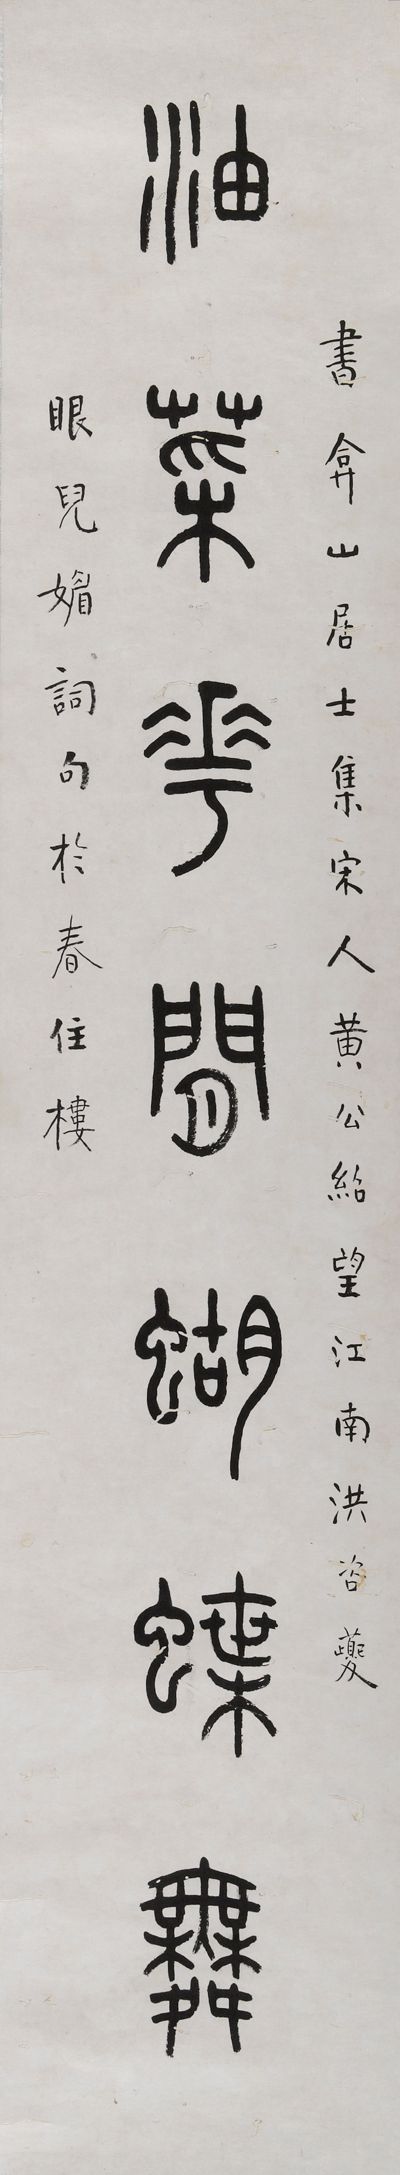 書弇山居士集宋人黄公紹望江南洪咨夔
油菜花間蝴蝶舞
眼兒媚詞句於春住樓